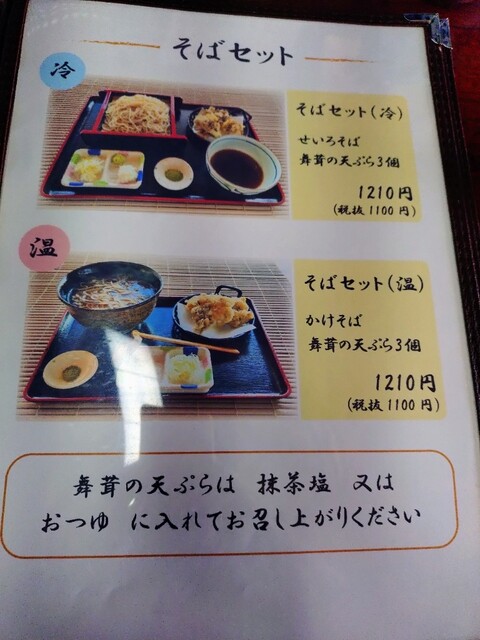 そばセット
冷
そばセット(冷)
せいろそば
舞茸の天ぷら3個
1210円
(税抜1100円)
温
そばセット(温)
かけそば
舞茸の天ぷら3個
1210円
(税抜1100円)
舞茸の天ぷらは 抹茶塩 又は
おつゆ に入れてお召し上がりください